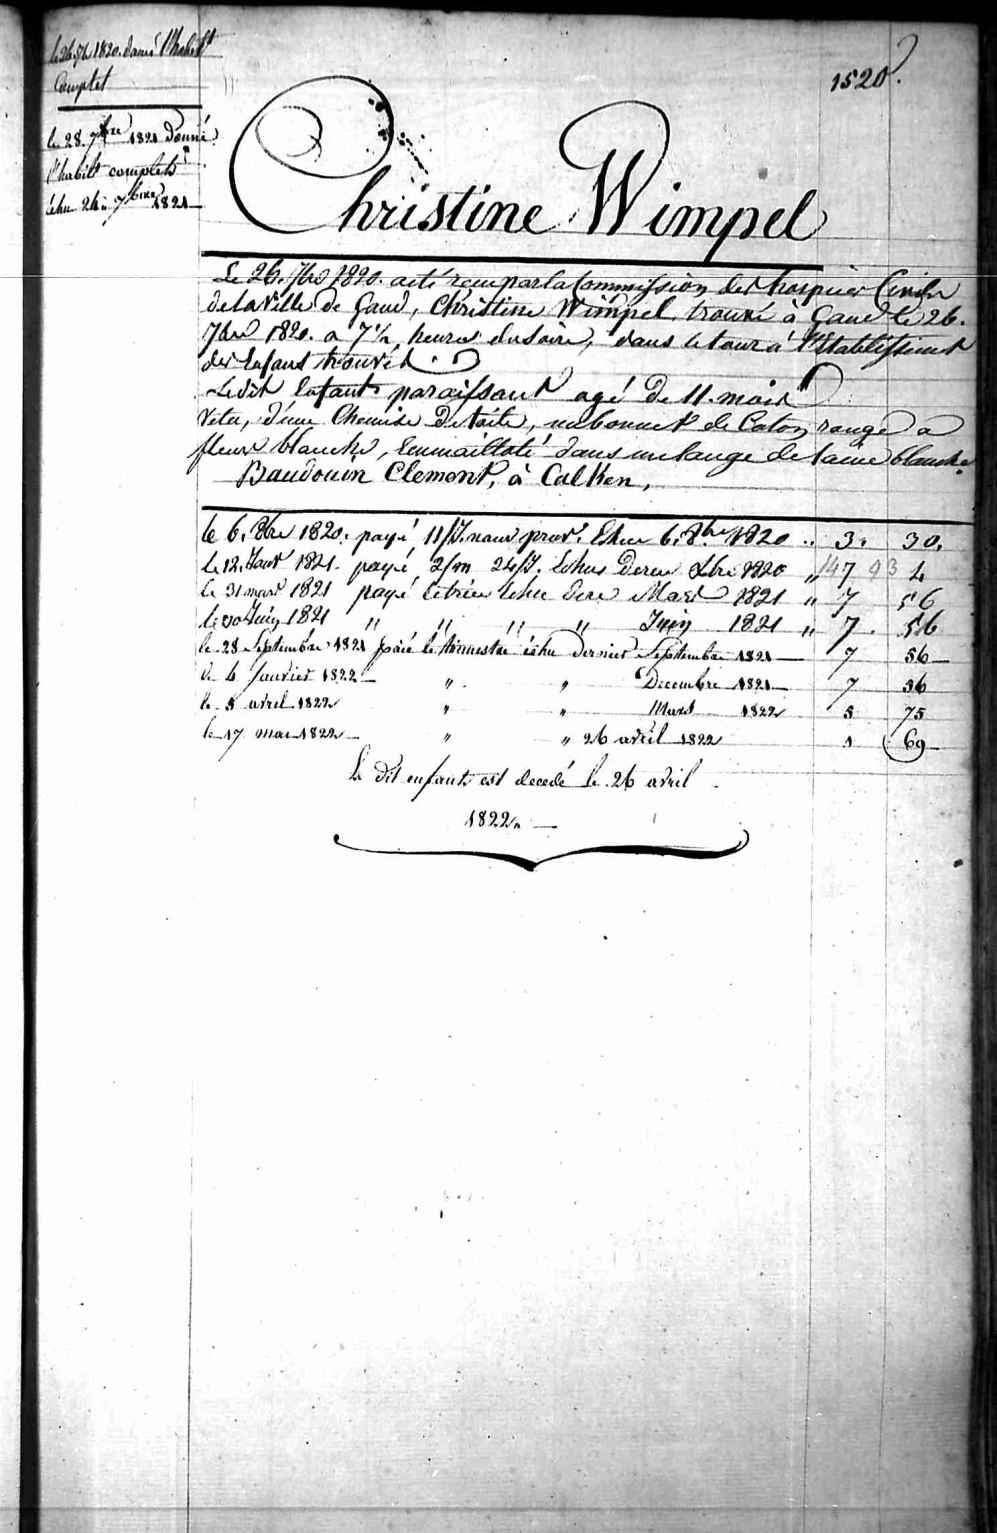 le 26. 7b 1820. donné l'habilt
Complet
le 28. 7bre 1821 donné
l'habilt complets
échu 26 7bre 1821
1520.
Christine Wimpel
Le 26. 7bre 1820. a eté recu par la Commission des hospices Civils
de la Ville de Gand, Christine Wimpel, trouvé à Gand le 26.
7bre 1820. a 7½ heures du Soire, dans le tour a l'Etablissement
des Enfans trouvés.
Ledit Enfant paraissant agé de 11. mois
Vetu, d'une Chemise De toile, un bonnet de Coton rouge a
fleur blanche, Enmailloté dans un lange de laine blanche
Baudouin Clement, à Calken,
le 6. 8bre 1820. payé 11/J. Echu 6. 8bre 1820 .. 3. 30.
le 12. Janr 1821. payé 2/m 24/J. Echus dereu Xbre 1820 " 7 93 4
le 31 mars 1821 payé letrieu Echu dere Mars 1821 " 7 56
le 30 Juin 1821 " " " " Juin 1821 " 7. 56
le 28 Septembre 1821 paié le trimestre échu dernier Septembre 1821 — 7 56 —
le 4 Janvier 1822 — " " Decembre 1821 — 7 56
le 5 avril 1822 " " Mars 1822 5 75
le 17 mai 1822 — " " 26 avril 1822 1 69 —
Le dit enfants est decedé le 26 avril
1822. —